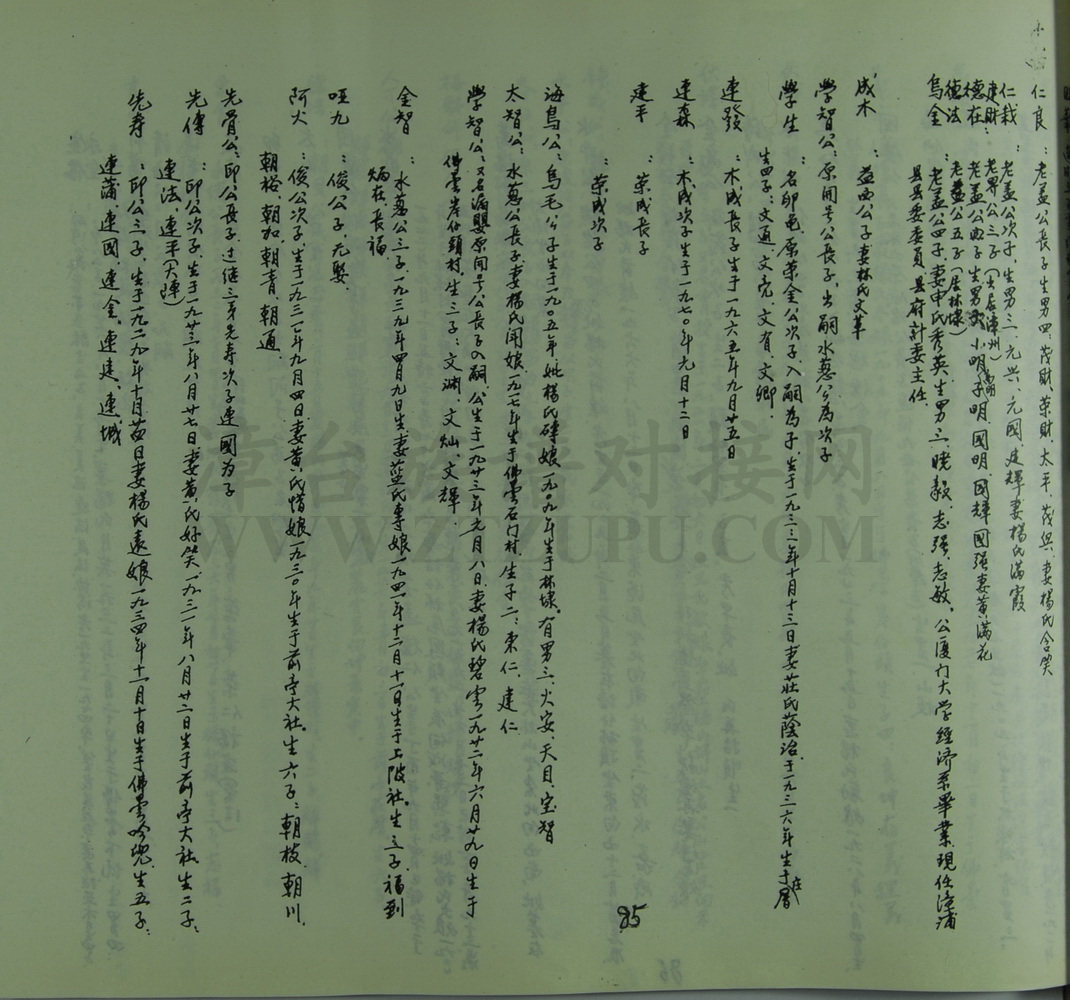 仁良：老孟公長子生男四、茂財、荣財、太平、茂興、妻楊氏含笑
仁栽：老孟公次子、生男三、元兴、元國、建輝妻楊氏满霞
建財：老孟公三子（出居漳州）
德在：老孟公四子生男 小明、子明、國明、國輝、國强妻黄满花
德法：老孟公五子（居林埭）
烏金：老孟公四子、妻申氏秀英、生男三、曉毅、志强、志敏。公厦门大学經济系畢業、現任漳浦
县县委委員、县府計委主任
成木：益西公子妻林氏文革
學智公：原開号公長子、出嗣水蔥公為次子
學生：名印龟、原荣金公次子、入嗣為子、生于一九三三年十月十三日妻莊氏蔭治、于一九三六年生于庄厝
生四子：文通、文亮、文有、文卿。
連發：木成長子生于一九六五年九月廿五日
連森：木成次子生于一九七〇年元月十二日
建平：荣成長子
：荣成次子
海烏公：烏毛公子生于一九〇五年、妣楊氏磚娘一九〇九年生于林埭。有男三、火安、天目、宝智
太智公：水蔥公長子、妻楊氏闹娘一九一七年生于佛曇石门村、生子二、東仁、建仁
學智公：又名病嬰、原開号公長子入嗣、公生于一九廿三年元月八日、妻楊氏碧雲一九廿二年六月廿九日生于
佛曇岸仔頭村、生三子：文渊、文灿、文輝
金智：水蔥公三子、一九三九年四月九日生妻蓝氏專娘一九四一年十二月十一日生于上陂社。生三子、福到
炳在、長福
啞九：俊公子、无娶
阿火：俊公次子、生于一九三一年九月四日、妻黄氏惜娘一九三〇年生于前亭大社。生六子：朝枝、朝川、
朝裕、朝加、朝青、朝通
先骨公：印公長子、过继三弟先寿次子連國为子
先傳：印公次子、生于一九廿三年八月廿七日、妻黄氏好笑、一九三一年八月廿二日生于前亭大社生二子：
連法、連平（大陣）
先寿：印公三子、生于一九二九年十月廿四日妻楊氏遠娘一九三四年十一月十日生于佛曇吟兜、生五子：
連蒲、連國、連金、連建、連城
85
漳台族谱对接网
WWW.ZTZUPU.COM